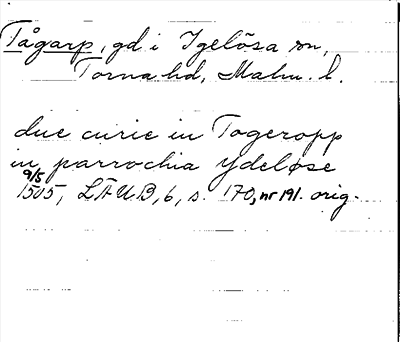 Tågarp, gd i Igelösa sn,
Torna hd, Malm. l.
due curie in Togeropp
in parrochia Ydeløse
9/5
1505, LÄUB, 6, s. 170, nr 191. orig.